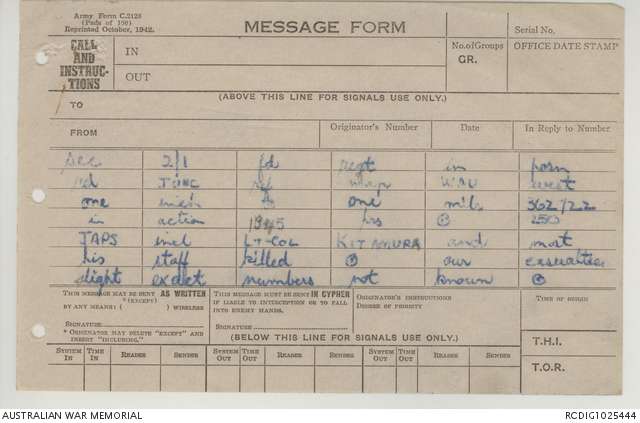 Army Form C.2128
(Pads of 100)
Reprinted October, 1942.
MESSAGE FORM
Serial No.
CALL AND INSTRUCTIONS
IN
OUT
No. of Groups
GR.
OFFICE DATE STAMP
(ABOVE THIS LINE FOR SIGNALS USE ONLY.)
TO
FROM
Originator's Number
Date
In Reply to Number
sec 2/1 fd regt in posn
JUNC ref map WAU west
one inch one mile 362722
in action 1945 hrs ⊙ 250
JAPS incl LT-COL KITAMURA and most
his staff killed ⊙ our casualties
slight exact numbers not known ⊙
THIS MESSAGE MAY BE SENT AS WRITTEN
* (EXCEPT)
BY ANY MEANS ( ) WIRELESS
SIGNATURE
* ORIGINATOR MAY DELETE "EXCEPT" AND INSERT "INCLUDING."
THIS MESSAGE MUST BE SENT IN CYPHER
IF LIABLE TO INTERCEPTION OR TO FALL INTO ENEMY HANDS.
SIGNATURE
ORIGINATOR'S INSTRUCTIONS
DEGREE OF PRIORITY
TIME OF ORIGIN
(BELOW THIS LINE FOR SIGNALS USE ONLY.)
T.H.I.
T.O.R.
SYSTEM IN TIME IN READER SENDER SYSTEM OUT TIME OUT READER SENDER SYSTEM OUT TIME OUT READER SENDER
AUSTRALIAN WAR MEMORIAL
RCDIG1025444